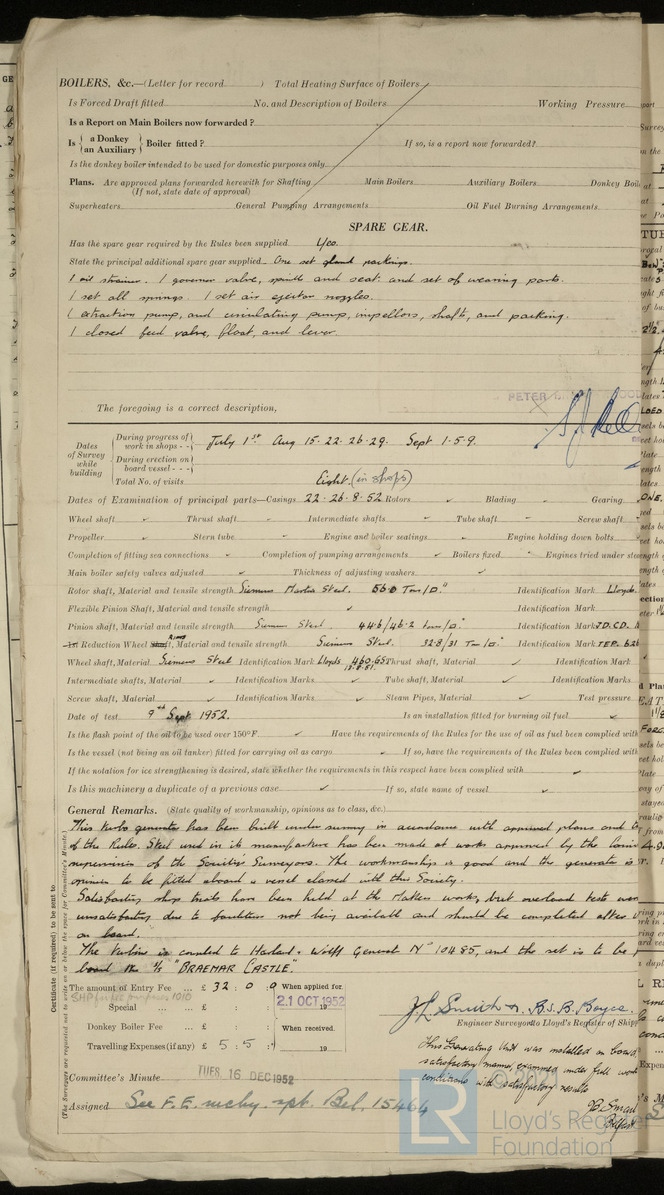 BOILERS, &c.—(Letter for record ) Total Heating Surface of Boilers
Is Forced Draft fitted No. and Description of Boilers Working Pressure
Is a Report on Main Boilers now forwarded?
Is { a Donkey / an Auxiliary } Boiler fitted? If so, is a report now forwarded?
Is the donkey boiler intended to be used for domestic purposes only
Plans. Are approved plans forwarded herewith for Shafting Main Boilers Auxiliary Boilers Donkey Boil
(If not, state date of approval)
Superheaters General Pumping Arrangements Oil Fuel Burning Arrangements
SPARE GEAR.
Has the spare gear required by the Rules been supplied Yes.
State the principal additional spare gear supplied One set gland packings.
1 oil strainer. 1 governor valve, spindle and seat and set of wearing parts.
1 set all springs. 1 set air ejector nozzles.
1 extraction pump, and circulating pump, impellors, shafts, and packing.
1 closed feed valve, float, and lever.
PETER
The foregoing is a correct description,
Dates of Survey while building
During progress of work in shops - - July 1st Aug 15. 22. 26. 29. Sept 1. 5. 9.
During erection on board vessel - - -
Total No. of visits Eight (in shops)
Dates of Examination of principal parts—Casings 22-26.8.52 Rotors Blading Gearing
Wheel shaft Thrust shaft Intermediate shafts Tube shaft Screw shaft
Propeller Stern tube Engine and boiler seatings Engine holding down bolts
Completion of fitting sea connections Completion of pumping arrangements Boilers fixed Engines tried under ste
Main boiler safety valves adjusted Thickness of adjusting washers
Rotor shaft, Material and tensile strength Siemens Martin Steel. Tons/□" Identification Mark Lloyds
Flexible Pinion Shaft, Material and tensile strength Identification Mark
Pinion shaft, Material and tensile strength Siemens Steel. 44.6/46.2 tons/□" Identification Mark J.D.C.D.
1st Reduction Wheel Shaft, Rims Material and tensile strength Siemens Steel. 32.8/31 Ton/□" Identification Mark TEP. 626
Wheel shaft, Material Siemens Steel Identification Mark Lloyds 460.GS Thrust shaft, Material Identification Mark
Intermediate shafts, Material Identification Marks Tube shaft, Material Identification Marks
Screw shaft, Material Identification Marks Steam Pipes, Material Test pressure
Date of test 9th Sept 1952. Is an installation fitted for burning oil fuel
Is the flash point of the oil to be used over 150°F. Have the requirements of the Rules for the use of oil as fuel been complied with
Is the vessel (not being an oil tanker) fitted for carrying oil as cargo If so, have the requirements of the Rules been complied with
If the notation for ice strengthening is desired, state whether the requirements in this respect have been complied with
Is this machinery a duplicate of a previous case If so, state name of vessel
General Remarks. (State quality of workmanship, opinions as to class, &c.)
This turbo generator has been built under survey in accordance with approved plans and
of the Rules. Steel used in its manufacture has been made at works approved by the
supervision of the Society's Surveyors. The workmanship is good and the generator is
opinion to be fitted aboard a vessel classed with this Society.
Satisfactory shop trials have been held at the Makers works, but overload tests were
unsatisfactory due to facilities not being available and should be completed after
on board.
The turbine is coupled to Harland & Wolff General No 10485, and the set is to be
board the T/S "BRAEMAR CASTLE".
Certificate (if required) to be sent to
(The Surveyors are requested not to write on or below the space for Committee's Minute.)
The amount of Entry Fee ... £ 32 : 0 : 0 When applied for
Special ... £ : : 21 OCT 1952
Donkey Boiler Fee ... £ : : When received.
Travelling Expenses (if any) £ 5 : 5 : 19
J.L. Smith & B.S.B. Boyce.
Engineer Surveyors to Lloyd's Register of Ship
This Generating Unit was installed on board
satisfactory manner, examined under full work
conditions with satisfactory results
Belfast
Committee's Minute TUES. 16 DEC 1952
Assigned See F.E. mchy. rpt. Bel. 15464
LR
Lloyd's Register
Foundation